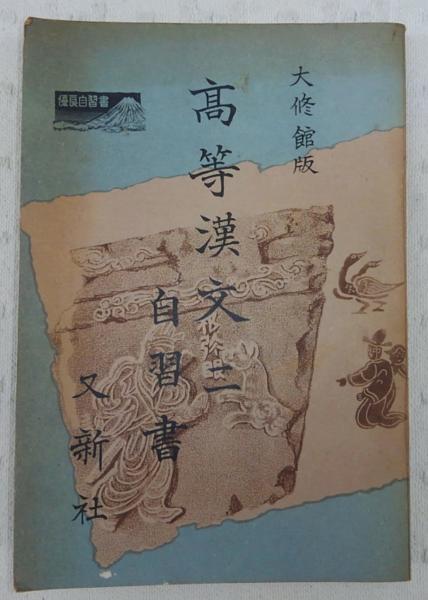 大修館版
高等漢文二
自習書
又新社
優良自習書